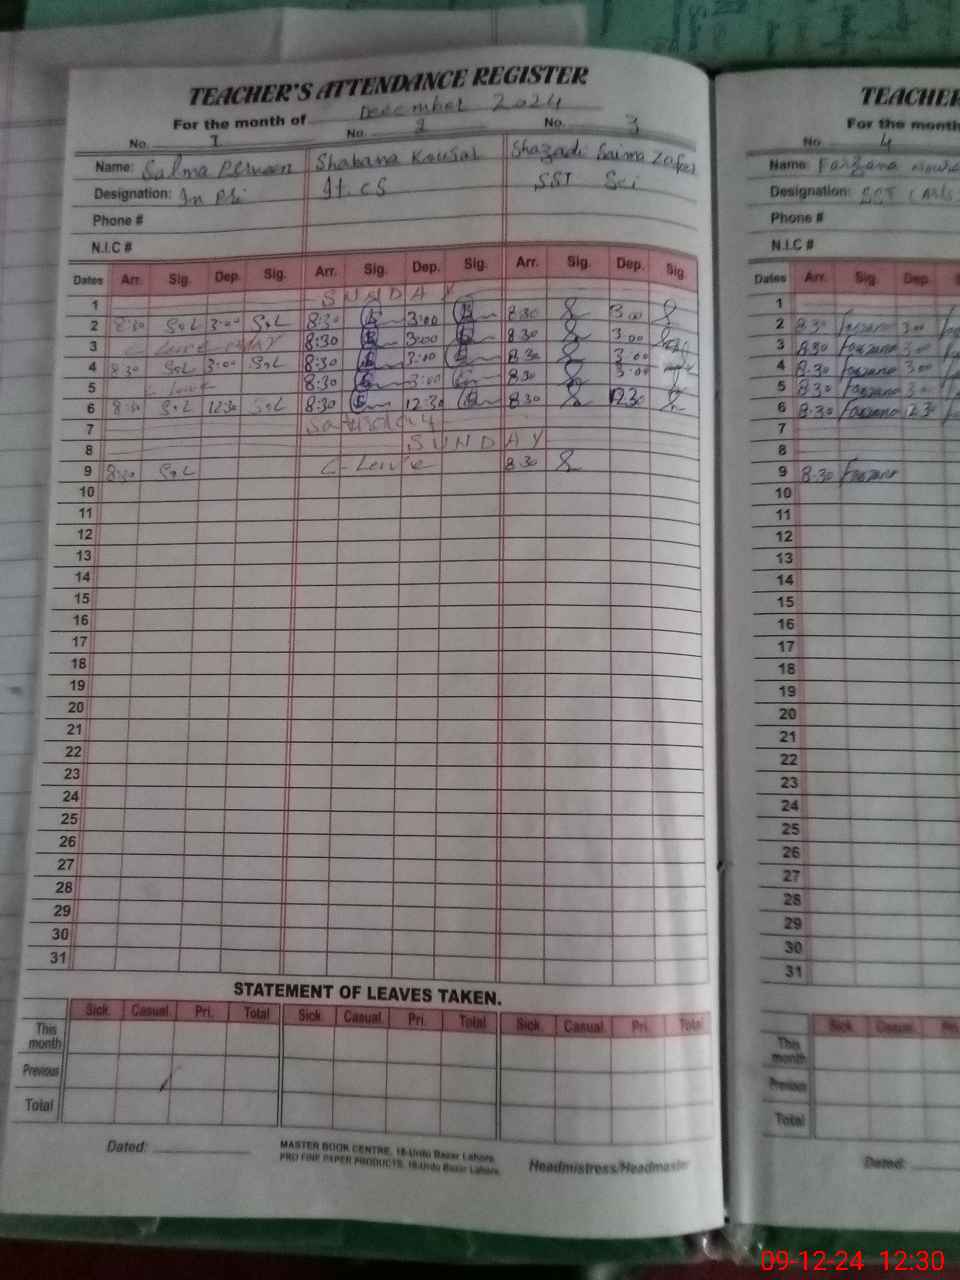 TEACHER'S ATTENDANCE REGISTER
For the month of December 2024
No. 1 No. 2 No. 3
Name: Salma Perveen Shabana Kousar Shazadi Saima Zafar
Designation: SST Sci
Phone #
N.I.C #
Dates Arr. Sig. Dep. Sig. Arr. Sig. Dep. Sig. Arr. Sig. Dep. Sig.
1 SUNDAY
2 8:30 S.L 3:00 S.L 8:30 3:00 8:30 3:00
3 C Leave 8:30 3:00 8:30 3:00
4 8:30 S.L 3:00 S.L 8:30 3:00 8:30 3:00
5 C Leave 8:30 3:00 8:30 3:00
6 8:30 S.L 12:30 S.L 8:30 12:30 8:30 12:30
7 Saturday
8 SUNDAY
9 8:30 S.L C-Leave 8:30
10
11
12
13
14
15
16
17
18
19
20
21
22
23
24
25
26
27
28
29
30
31
STATEMENT OF LEAVES TAKEN.
Sick Casual Pri. Total Sick Casual Pri. Total Sick Casual Pri. Total
This month
Previous
Total
Dated:
MASTER BOOK CENTRE, 18-Urdu Bazar Lahore.
PRO FINE PAPER PRODUCTS, 18-Urdu Bazar Lahore.
Headmistress/Headmaster
TEACHER
For the month
No 4
Name: Farzana
Designation: SST (Arts
Phone #
N.I.C #
Dates Arr. Sig. Dep.
1
2 8:30 Farzana 3:00
3 8:30 Farzana 3:00
4 8:30 Farzana 3:00
5 8:30 Farzana 3:00
6 8:30 Farzana 12:30
7
8
9 8:30 Farzana
10
11
12
13
14
15
16
17
18
19
20
21
22
23
24
25
26
27
28
29
30
31
Sick Casual
This month
Previous
Total
Dated:
09-12-24 12:30